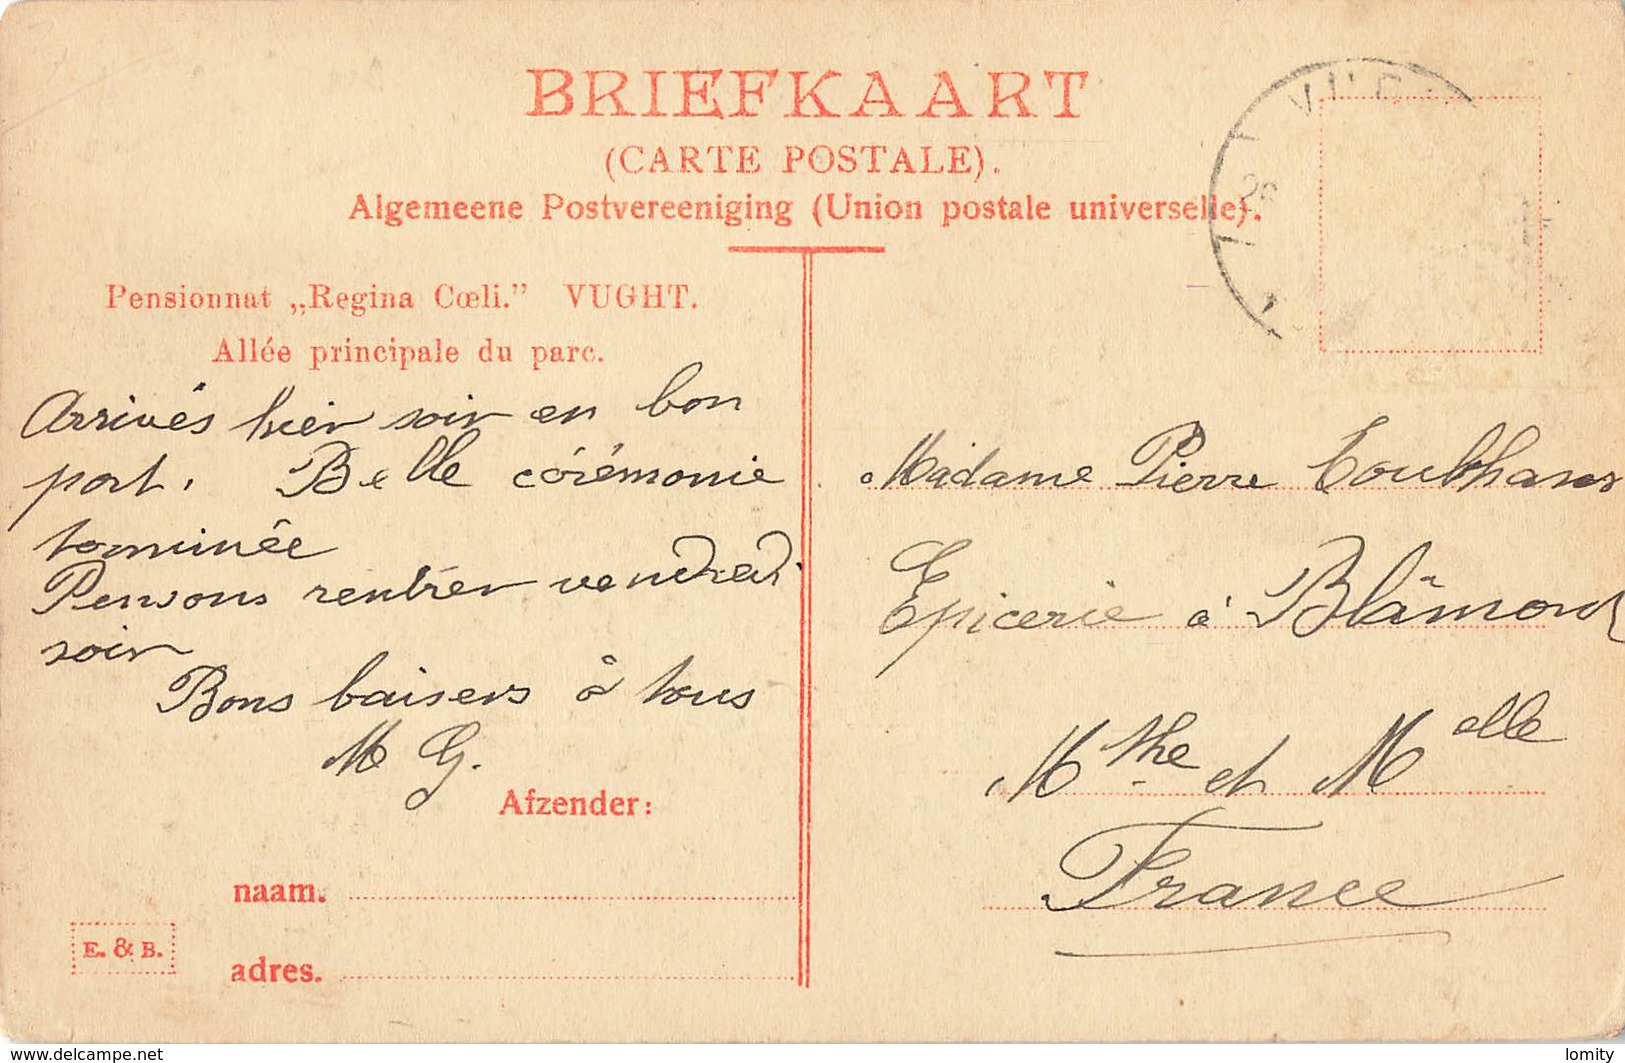 BRIEFKAART
(CARTE POSTALE).
Algemeene Postvereeniging (Union postale universelle).
Pensionnat „Regina Cœli.” VUGHT.
Allée principale du parc.
Arrivés hier soir en bon
port. Belle cérémonie
terminée
Pensons rentrer vendredi
soir
Bons baisers à tous
M G.
Afzender:
naam.
adres.
E. & B.
Madame Pierre
Epicerie à Blâmont
Mthe et Melle
France
www.delcampe.net
lomity